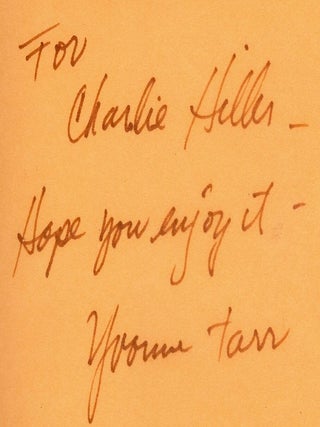 For
Charlie Hiller -
Hope you enjoy it -
Yvonne Tarr